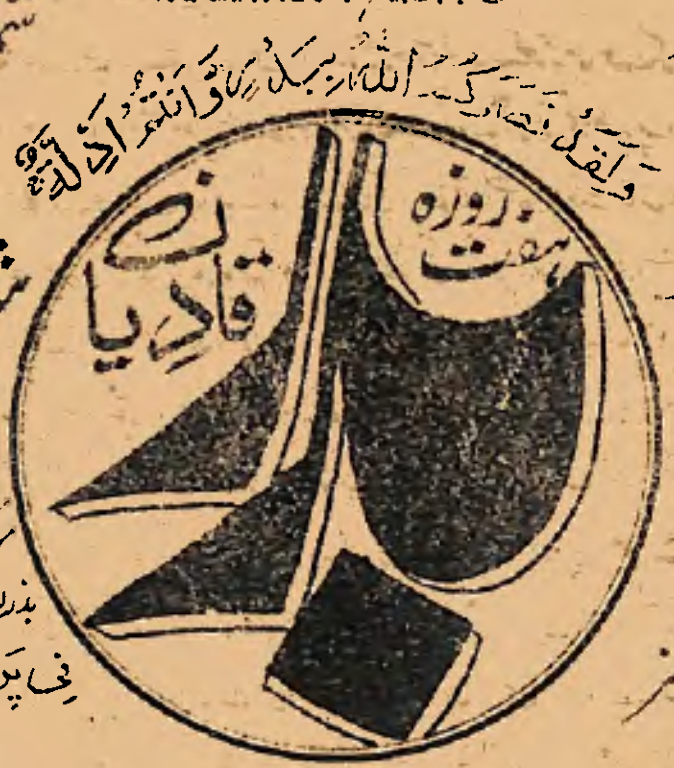 وَلَقَدْ نَصَرَكُمُ اللّٰهُ بِبَدْرٍ وَّاَنْتُمْ اَذِلَّةٌ
ہفت روزہ
بدر
قادیان
بذر
فی پر